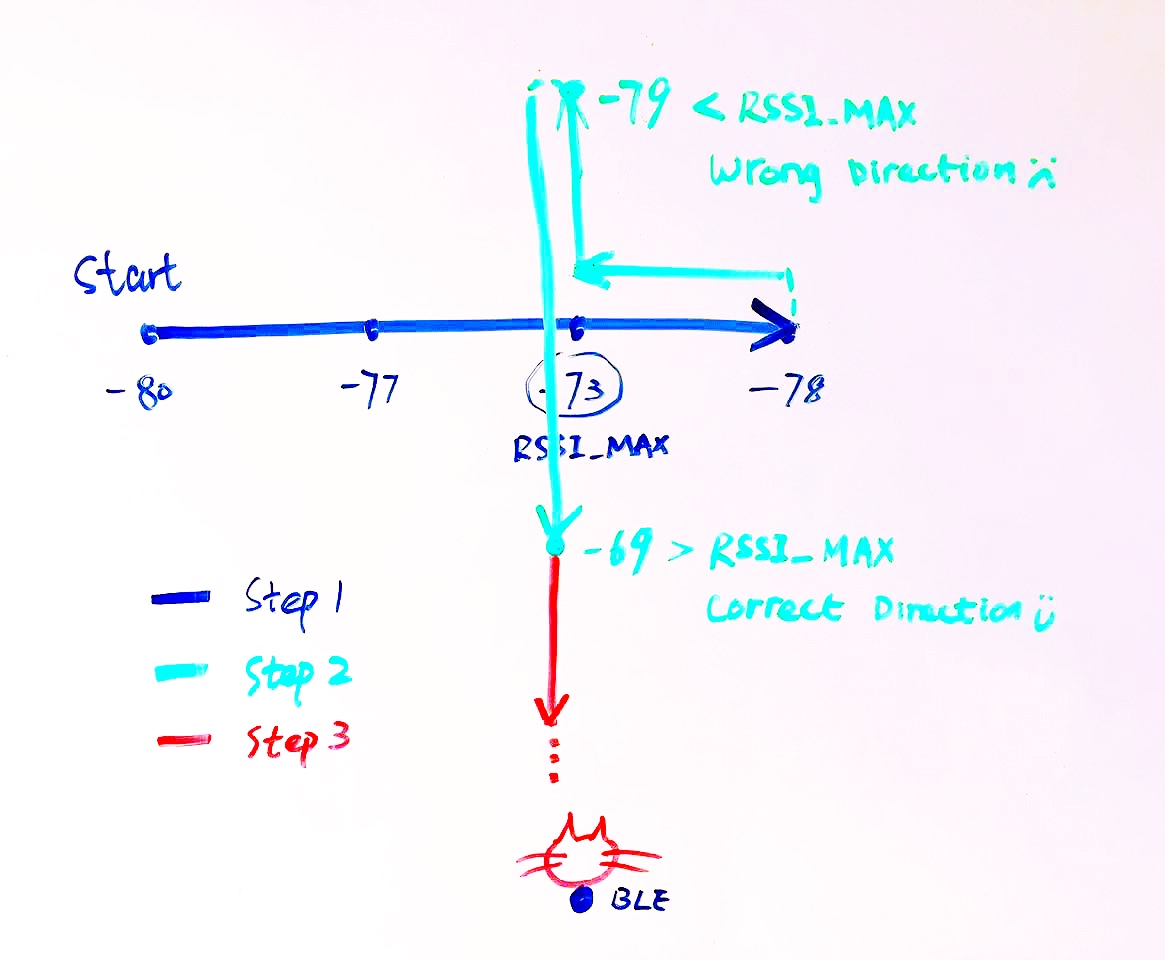 -79 < RSSI_MAX
Wrong Direction
Start
-80
-77
-73
-78
RSSI_MAX
-69 > RSSI_MAX
Correct Direction
Step 1
Step 2
Step 3
BLE